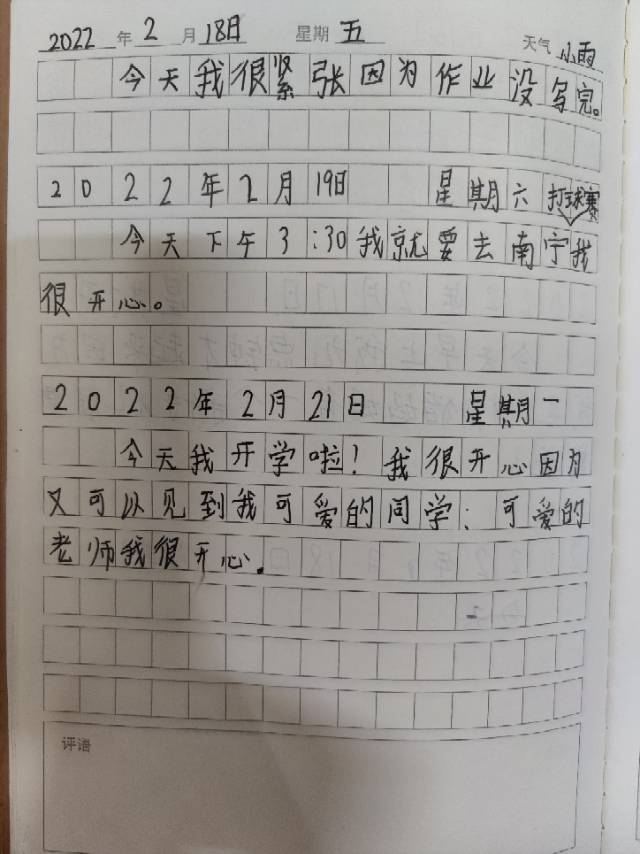 2022年2月18日 星期五 天气小雨
今天我很紧张因为作业没写完。
2022年2月19日 星期六
打球赛
今天下午3:30我就要去南宁我
很开心。
2022年2月21日 星期一
今天我开学啦！我很开心因为
又可以见到我可爱的同学：可爱的
老师我很开心.
评语